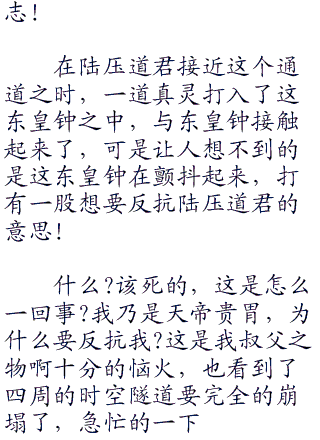 志！
在陆压道君接近这个通
道之时，一道真灵打入了这
东皇钟之中，与东皇钟接触
起来了，可是让人想不到的
是这东皇钟在颤抖起来，打
有一股想要反抗陆压道君的
意思！
什么?该死的，这是怎么
一回事?我乃是天帝贵胄，为
什么要反抗我?这是我叔父之
物啊十分的恼火，也看到了
四周的时空隧道要完全的崩
塌了，急忙的一下